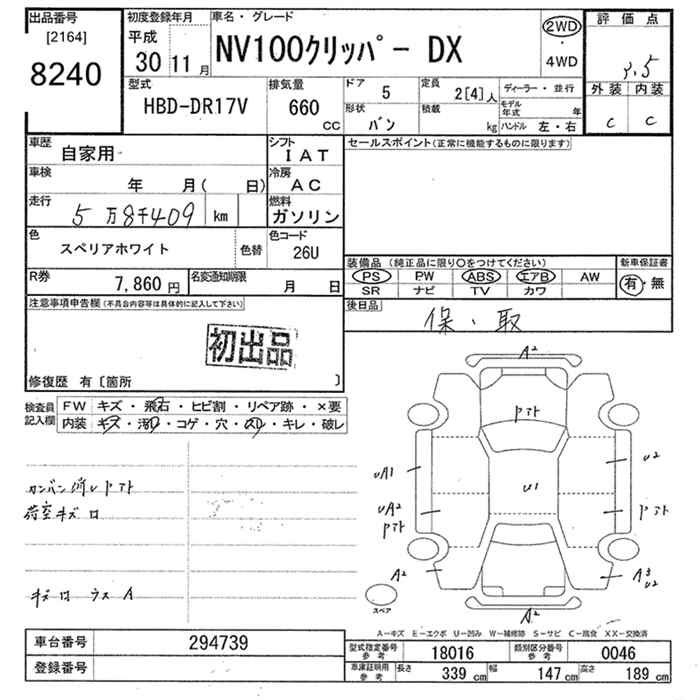 出品番号
[2164]
8240
初度登録年月
平成
30 11 月
車名・グレード
NV100クリッパー DX
2WD
・
4WD
評価点
3.5
外装 内装
C C
型式
HBD-DR17V
排気量
660 CC
ドア 5
定員 2[4]人
ディーラー・並行
形状 バン
積載 kg
モデル年式 年
ハンドル 左・右
車歴 自家用
シフト IAT
セールスポイント(正常に機能するものに限ります)
車検 年 月( 日)
冷房 AC
走行 5万8千409 km
燃料 ガソリン
色 スペリアホワイト 色替
色コード 26U
装備品 (純正品に限り○をつけてください) 新車保証書
PS PW ABS エアB AW 有・無
SR ナビ TV カワ
R券 7,860円
名変通知期限 月 日
後日品
保・取
注意事項申告欄(不具合内容等は具体的に記入して下さい)
初出品
修復歴 有〔箇所 〕
検査員記入欄
FW キズ・飛石・ヒビ割・リペア跡・×要
内装 キズ・汚れ・コゲ・穴・スレ・キレ・破レ
A2
Pアト
UA1
U2
U1
UA2
Pアト
Pアト
カンバン消しPアト
荷室キズ
A2
A3
U2
スペア
A2
キズ ウスA
A−キズ E−エクボ U−凹み W−補修跡 S−サビ C−腐食 XX−交換済
車台番号 294739
型式指定番号参考 18016
類別区分番号参考 0046
登録番号
車庫証明用参考 長さ 339 cm 幅 147 cm 高さ 189 cm